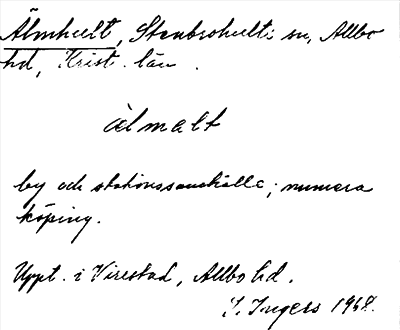 Älmhult, Stenbrohults sn, Allbo
hd, Krist. län.
älmalt
by och stationssamhälle; numera
köping.
Uppt. i Virestad, Allbo hd.
I. Ingers 1968.